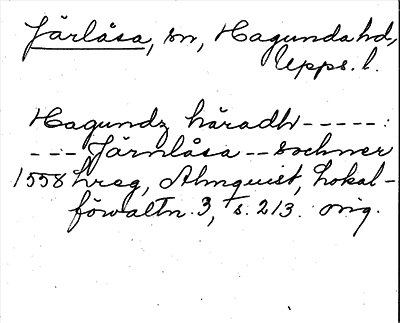 Järlåsa, sn, Hagunda hd,
Upps. l.
Hagundz häradh -----:
--- Järnlåsa -- sochner
1558 hreg, Almquist, Lokal-
förvaltn. 3, s. 213. orig.